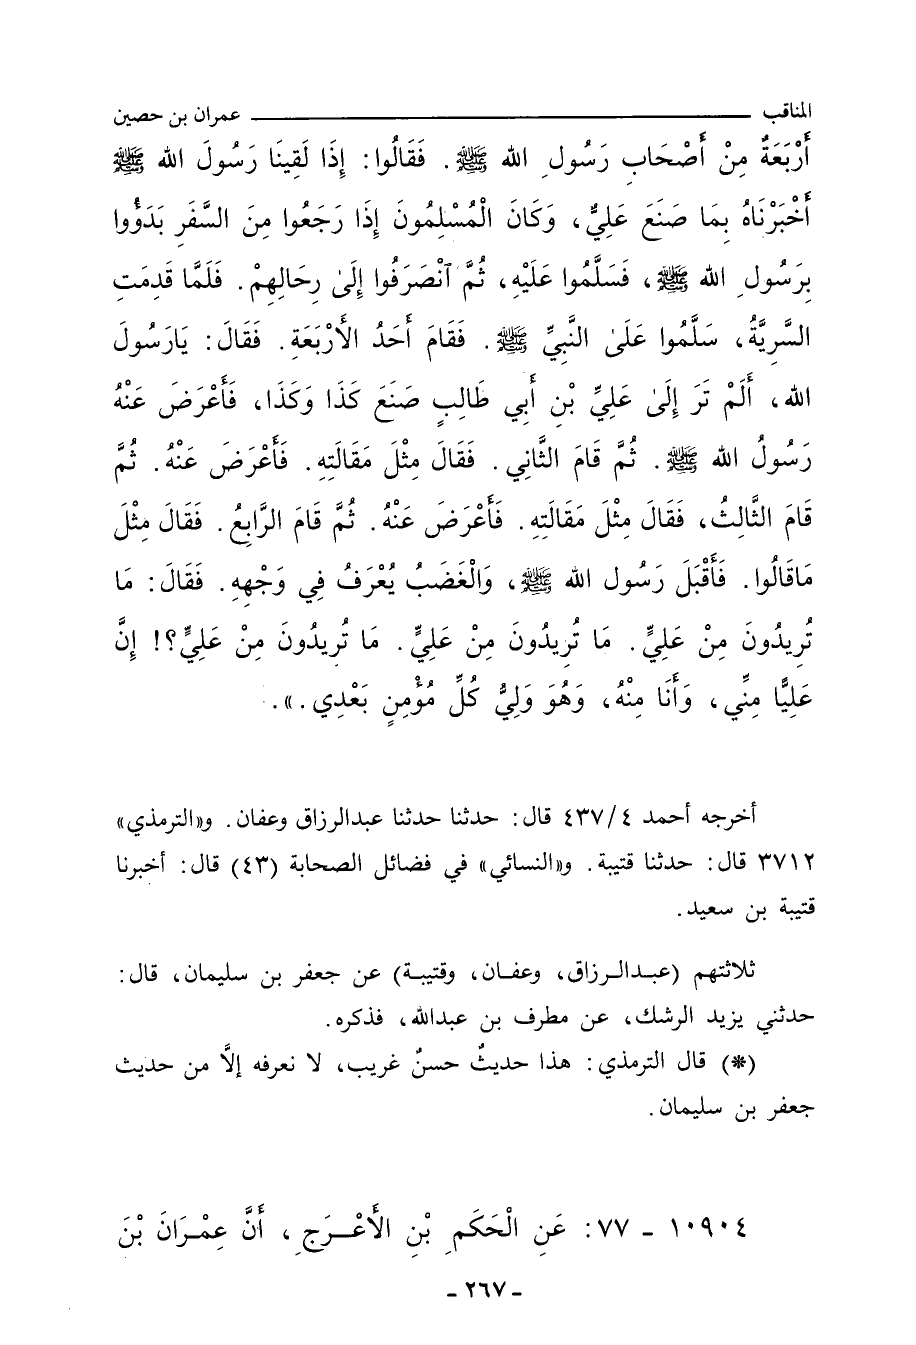 المناقب ــــــــ عمران بن حصين
أَرْبَعَةٌ مِنْ أَصْحَابِ رَسُولِ الله ﷺ . فَقَالُوا: إِذَا لَقِينَا رَسُولَ الله ﷺ
أَخْبَرْنَاهُ بِمَا صَنَعَ عَلِيٌّ، وَكَانَ الْمُسْلِمُونَ إِذَا رَجَعُوا مِنَ السَّفَرِ بَدَؤُوا
بِرَسُولِ الله ﷺ، فَسَلَّمُوا عَلَيْهِ، ثُمَّ ٱنْصَرَفُوا إِلَىٰ رِحَالِهِمْ. فَلَمَّا قَدِمَتِ
السَّرِيَّةُ، سَلَّمُوا عَلَىٰ النَّبِيِّ ﷺ . فَقَامَ أَحَدُ الأَرْبَعَةِ. فَقَالَ: يَارَسُولَ
الله، أَلَمْ تَرَ إِلَىٰ عَلِيِّ بْنِ أَبِي طَالِبٍ صَنَعَ كَذَا وَكَذَا، فَأَعْرَضَ عَنْهُ
رَسُولُ الله ﷺ . ثُمَّ قَامَ الثَّانِي. فَقَالَ مِثْلَ مَقَالَتِهِ. فَأَعْرَضَ عَنْهُ. ثُمَّ
قَامَ الثَّالِثُ، فَقَالَ مِثْلَ مَقَالَتِهِ. فَأَعْرَضَ عَنْهُ. ثُمَّ قَامَ الرَّابِعُ. فَقَالَ مِثْلَ
مَاقَالُوا. فَأَقْبَلَ رَسُولُ الله ﷺ، وَالْغَضَبُ يُعْرَفُ فِي وَجْهِهِ. فَقَالَ: مَا
تُرِيدُونَ مِنْ عَلِيٍّ. مَا تُرِيدُونَ مِنْ عَلِيٍّ. مَا تُرِيدُونَ مِنْ عَلِيٍّ؟! إِنَّ
عَلِيًّا مِنِّي، وَأَنَا مِنْهُ، وَهُوَ وَلِيُّ كُلِّ مُؤْمِنٍ بَعْدِي.».
أخرجه أحمد ٤/ ٤٣٧ قال: حدثنا حدثنا عبدالرزاق وعفان. و«الترمذي»
٣٧١٢ قال: حدثنا قتيبة. و«النسائي» في فضائل الصحابة (٤٣) قال: أخبرنا
قتيبة بن سعيد.
ثلاثتهم (عبدالرزاق، وعفان، وقتيبة) عن جعفر بن سليمان، قال:
حدثني يزيد الرشك، عن مطرف بن عبدالله، فذكره.
(*) قال الترمذي: هذا حديثٌ حسنٌ غريب، لا نعرفه إلاَّ من حديث
جعفر بن سليمان.
١٠٩٠٤ - ٧٧: عَنِ الْحَكَمِ بْنِ الأَعْرَجِ، أَنَّ عِمْرَانَ بْنَ
- ٢٦٧ -